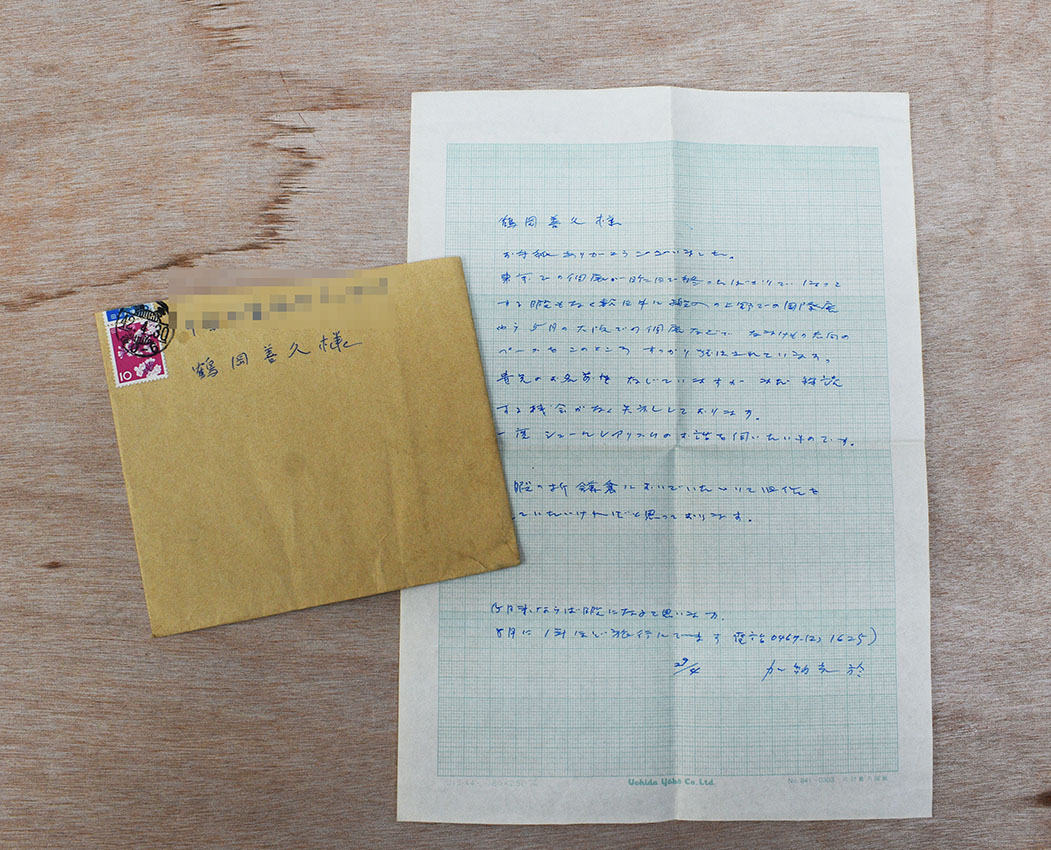 42.4.30
10
鶴岡善久様
鶴岡善久様
お手紙ありがとうございました。
東京での個展が昨日で終ったばかりでいなって
する暇もなく数日中に上野での国際展
5月の大阪での個展などで なまけもの
ペースもこのところ すっかり されています。
貴兄のお名前を存じていますが まだ 拝
する機会がなく失礼しております。
一度 シュールレアリスムのお話を伺いたいものです。
暇の折 鎌倉においでいただいて旧作を
ていただければと思っております。
5月末ならば暇になると思います。
8月に 1年ほど旅行にでます 電話0467-(2)1625)
29/4 加納光於
Uchida Yoko Co. Ltd.
No. 841-0303